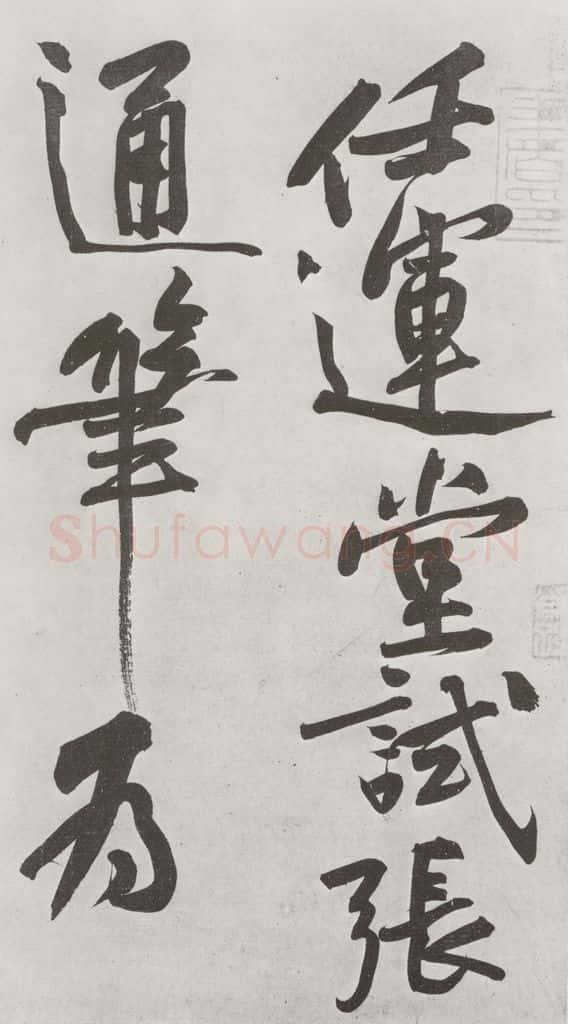 任運堂試張
通筆為
Shufawang.CN